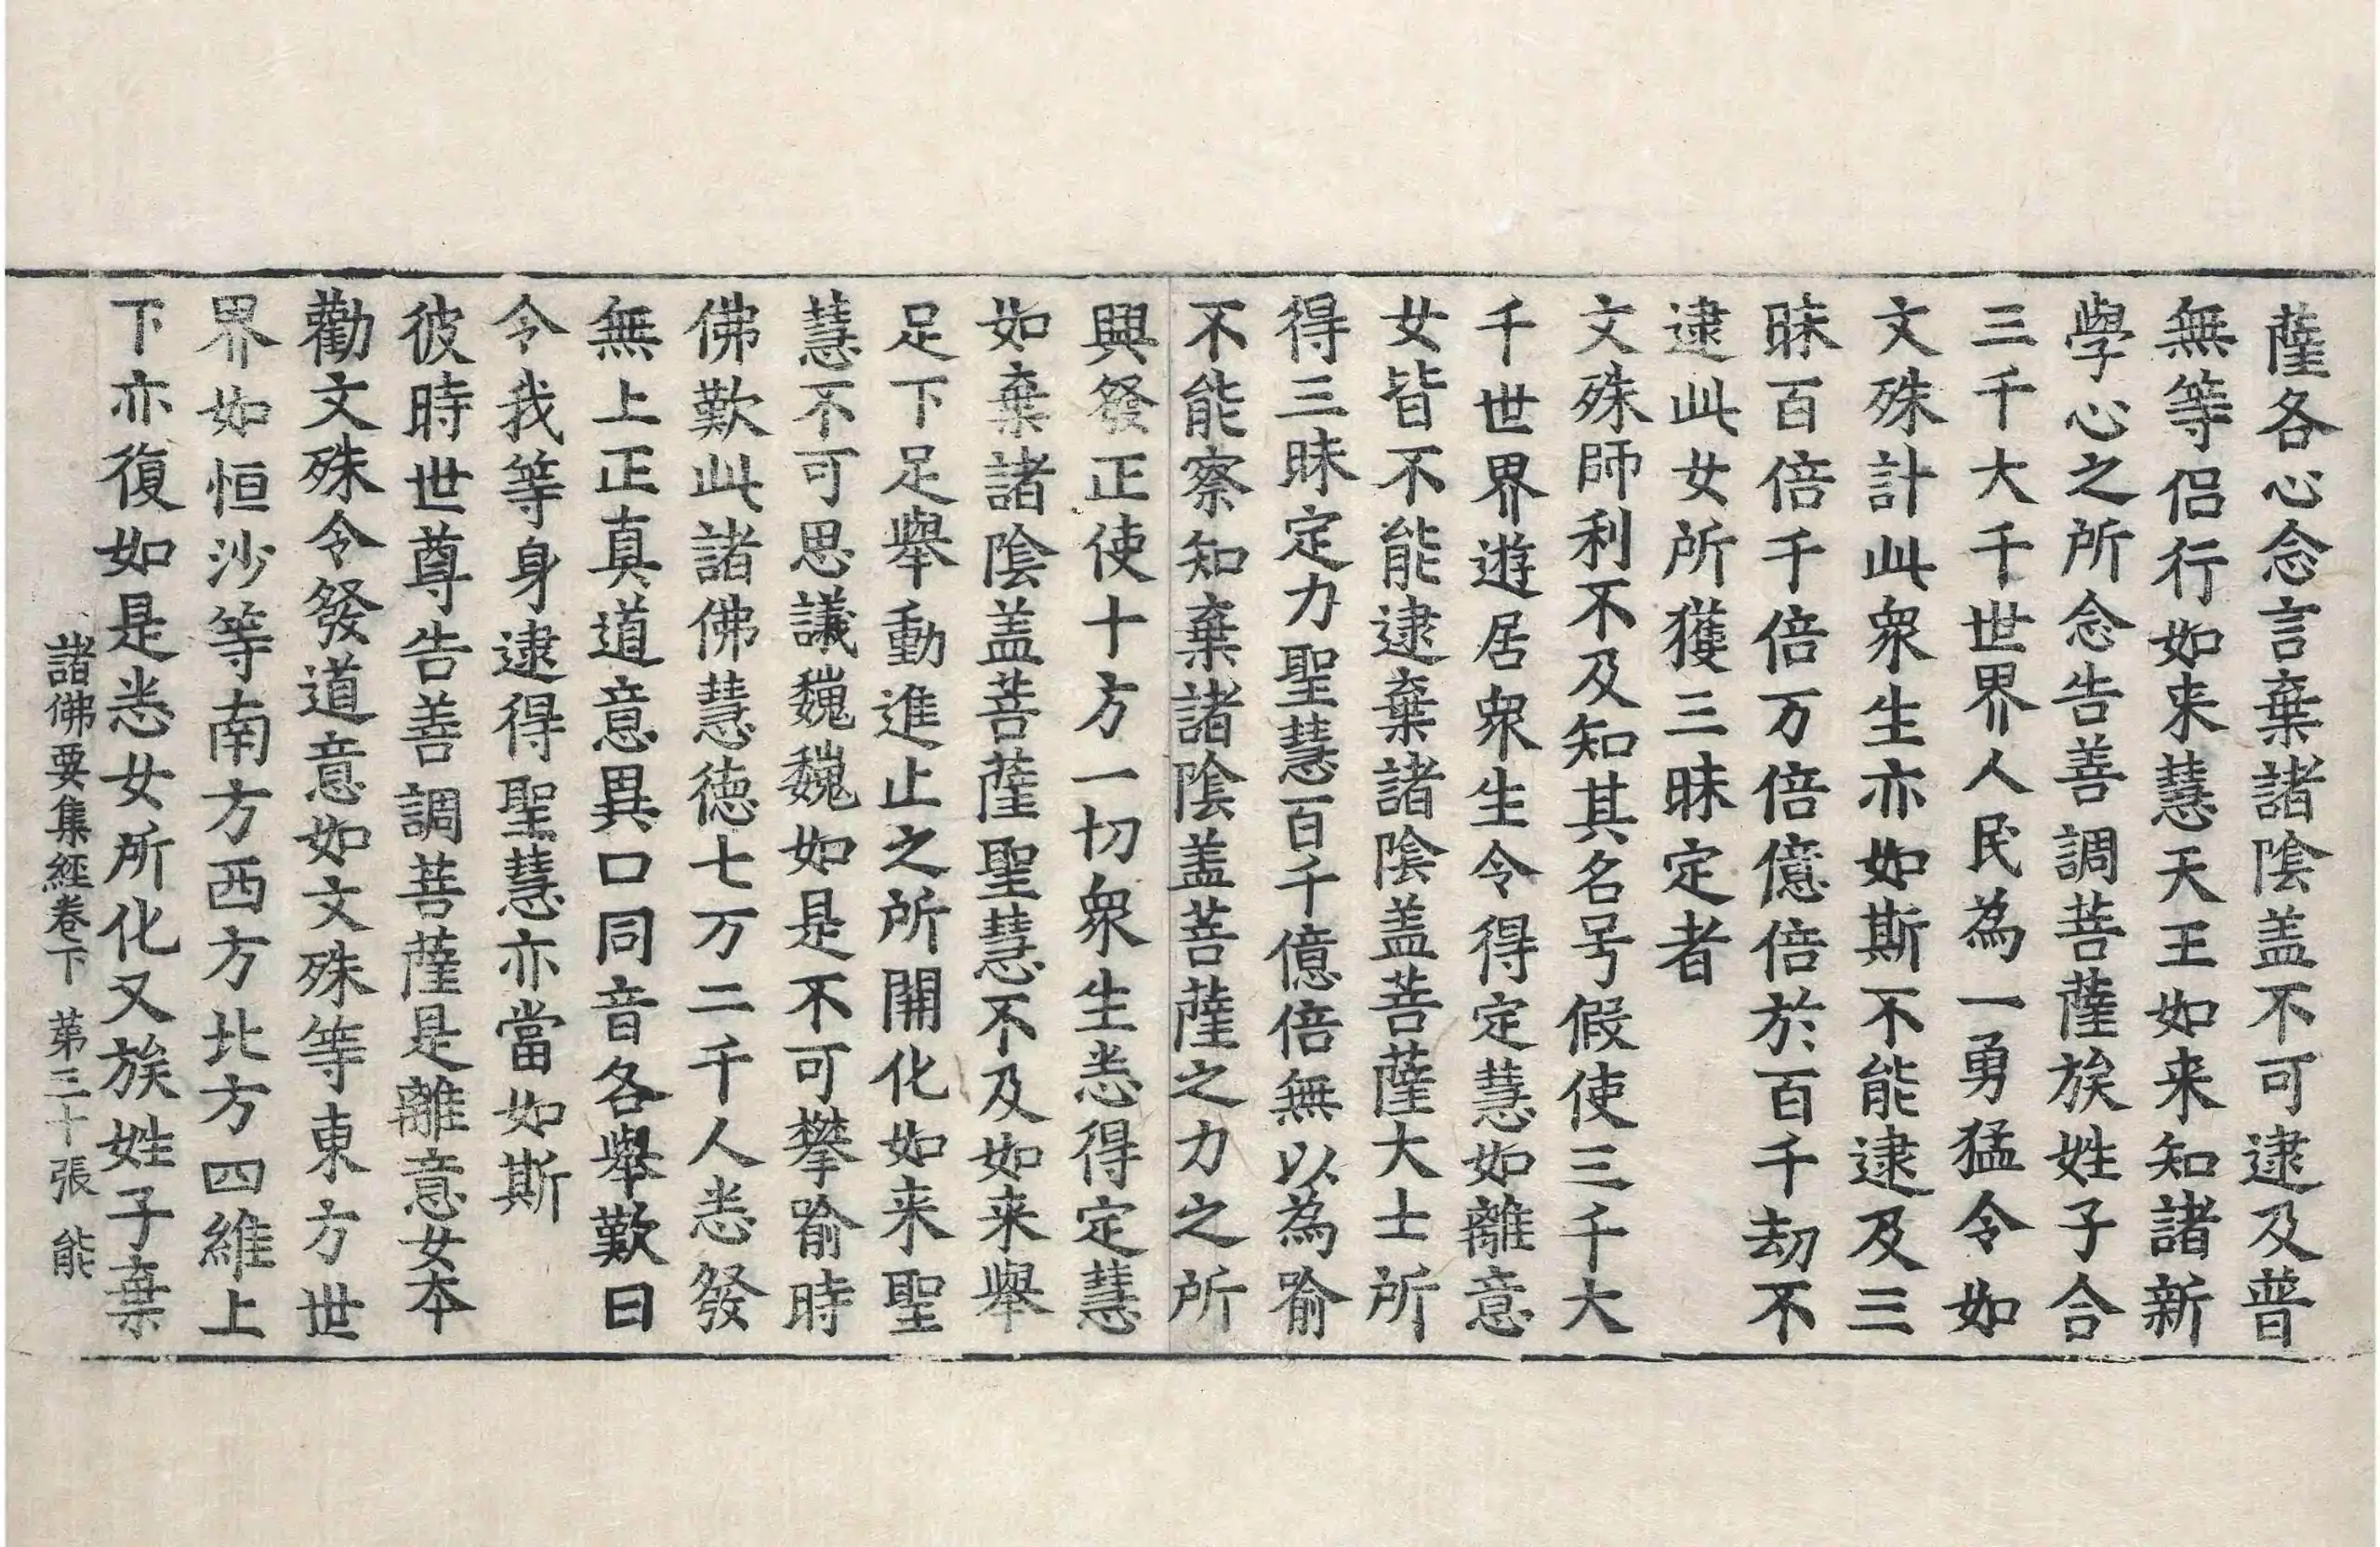 薩各心念言棄諸陰盖不可逮及普
無等侣行如来慧天王如来知諸新
學心之所念告善調菩薩族姓子合
三千大千世界人民為一勇猛令如
文殊計此衆生亦如斯不能逮及三
昧百倍千倍万倍億倍於百千劫不
逮此女所獲三昧定者
文殊師利不及知其名号假使三千大
千世界遊居衆生令得定慧如離意
女皆不能逮棄諸陰盖菩薩大士所
得三昧定力聖慧百千億倍無以為喻
不能察知棄諸陰盖菩薩之力之所
興發正使十方一切衆生悉得定慧
如棄諸陰盖菩薩聖慧不及如来舉
足下足舉動進止之所開化如来聖
慧不可思議巍巍如是不可攀喻時
佛歎此諸佛慧徳七万二千人悉發
無上正真道意異口同音各舉歎曰
令我等身逮得聖慧亦當如斯
彼時世尊告善調菩薩是離意女本
勸文殊令發道意如文殊等東方世
界如恒沙等南方西方北方四維上
下亦復如是悉女所化又族姓子棄
諸佛要集經卷下 第三十張 能